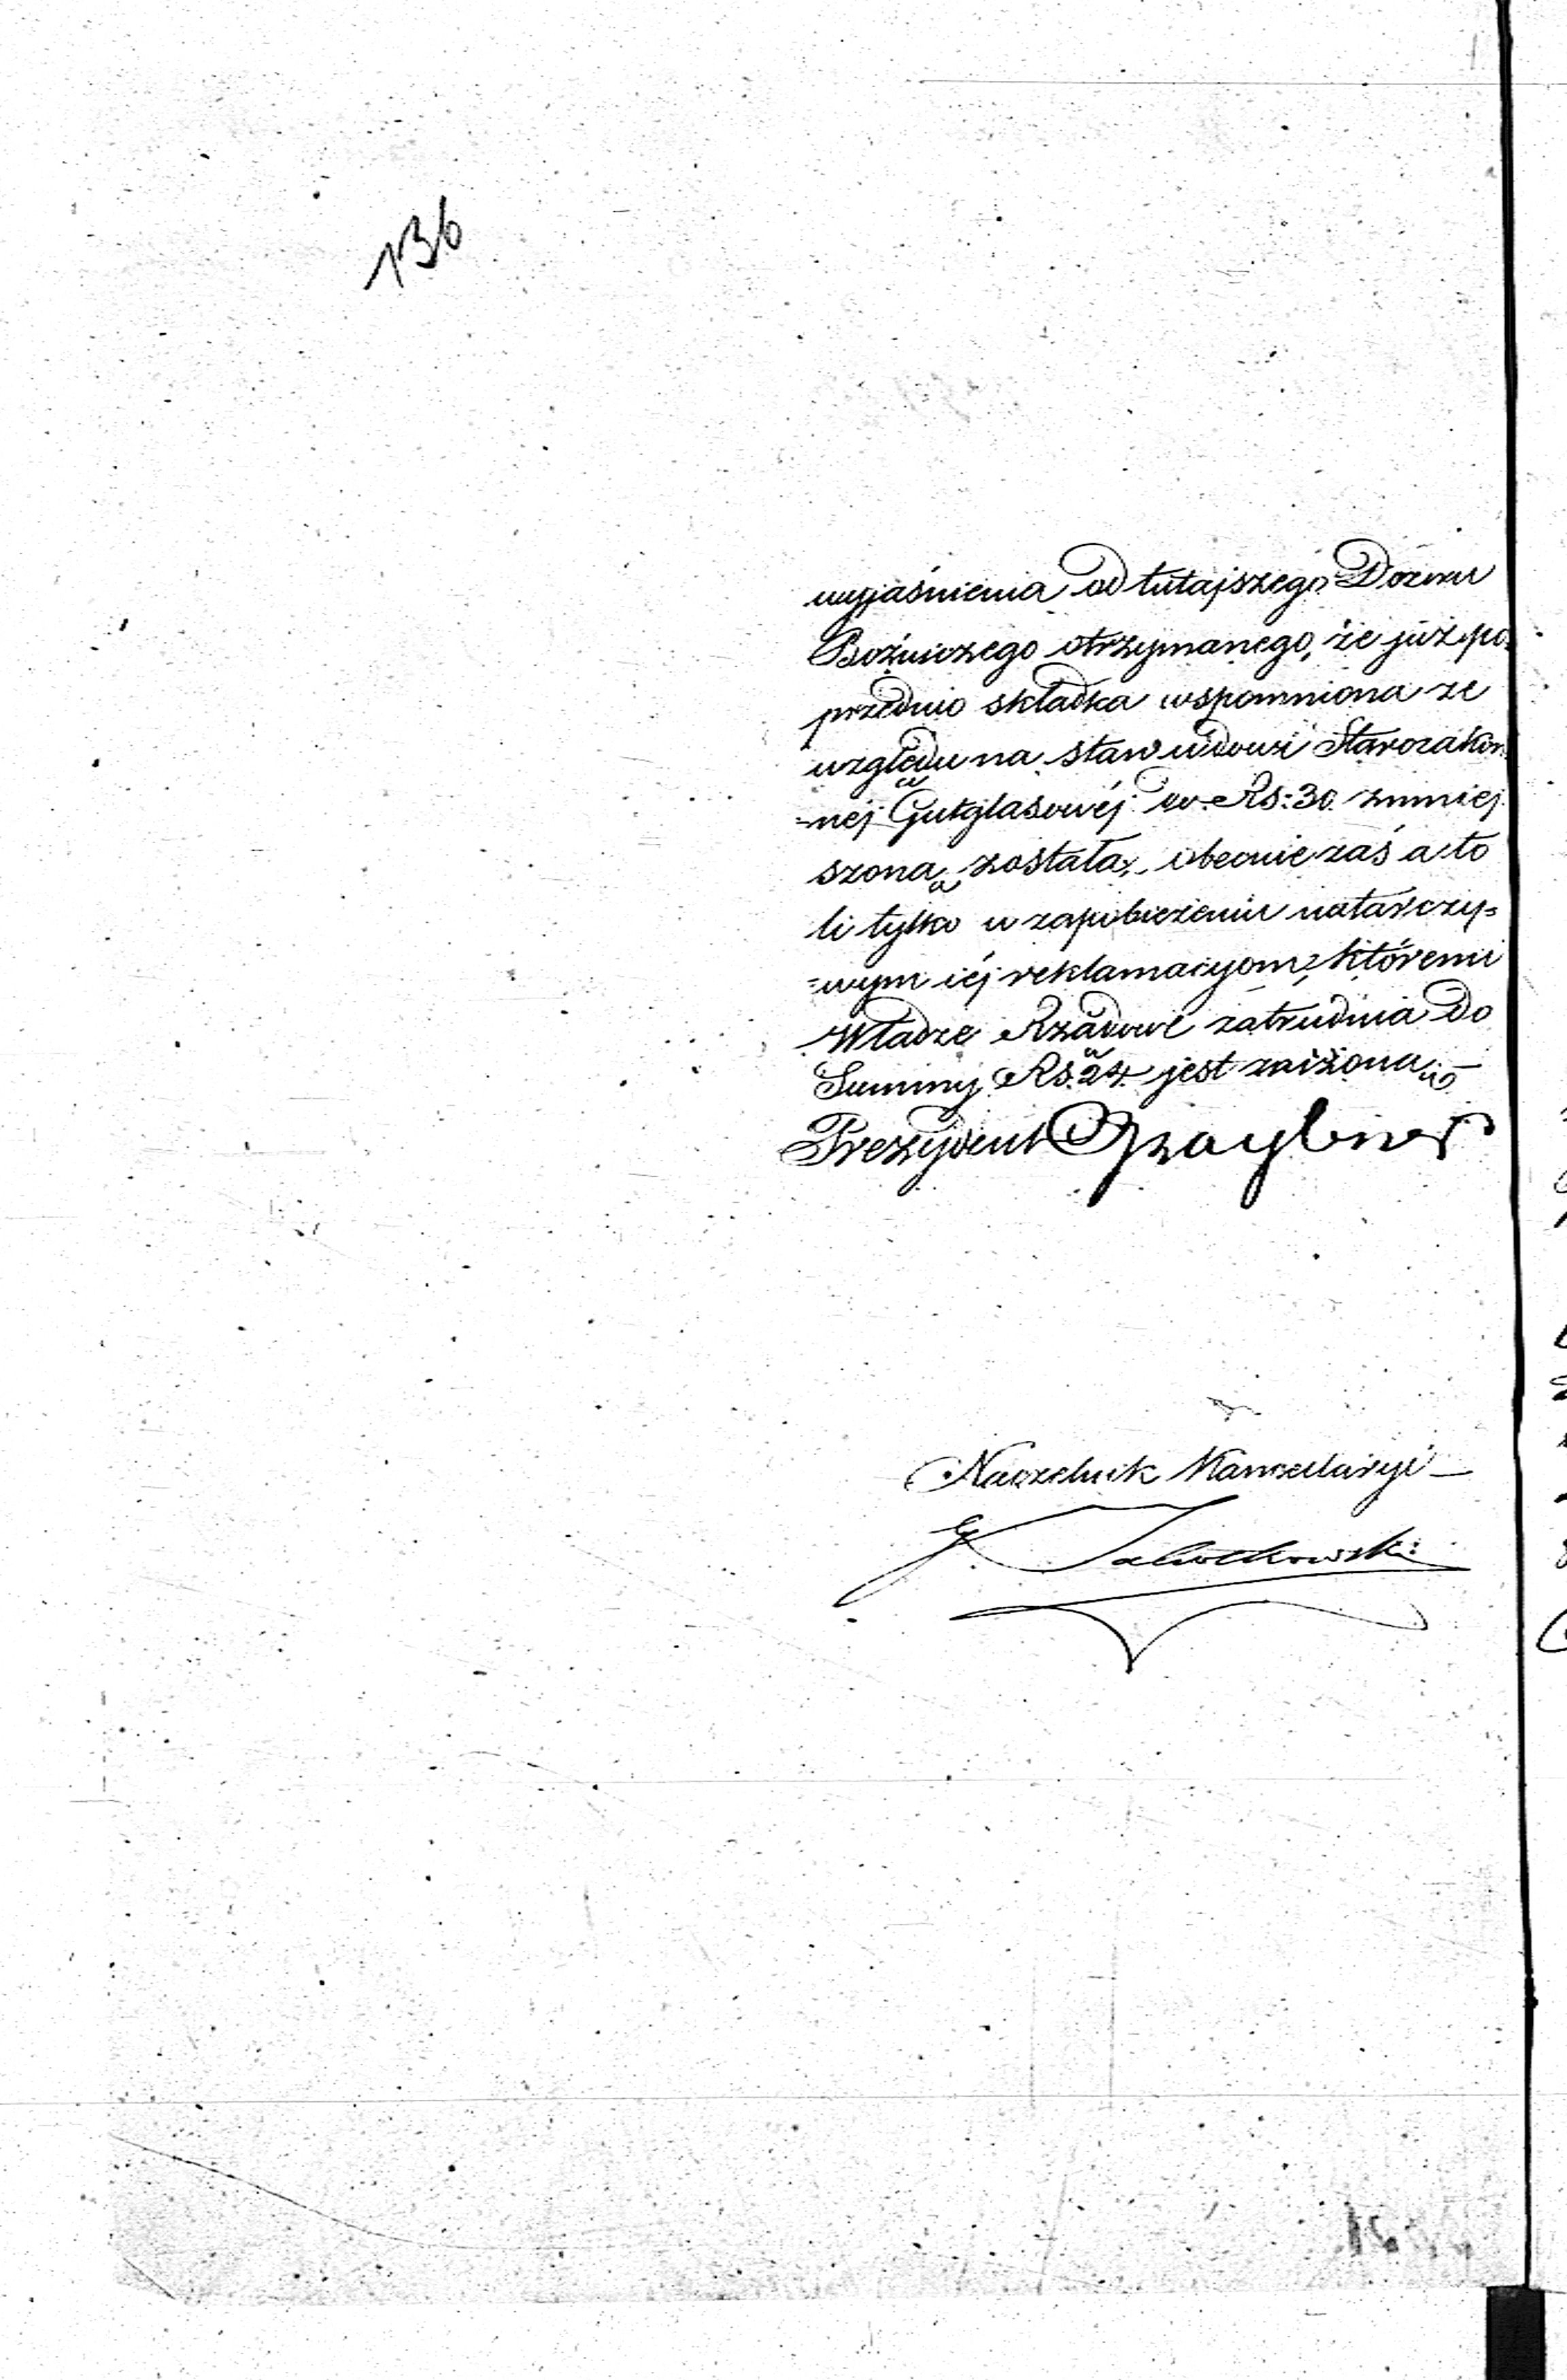 136
wyjaśnienia od tutajszego Dozoru
Bóźniczego otrzymanego, że już po-
przednio składka wspomniona ze
względu na stan wdowi Starozakon
=nej Gutglasowéj do Rs: 30 zmniej
szoną została, obecnie zaś a to
li tylko w zapobieżeniu natarczy=
=wym iéj reklamacyom, któremi
Władze Rządowe zatrudnia do
Summy Rs. 24 jest zniżoną
Prezydent
Naczelnik Kancellaryi